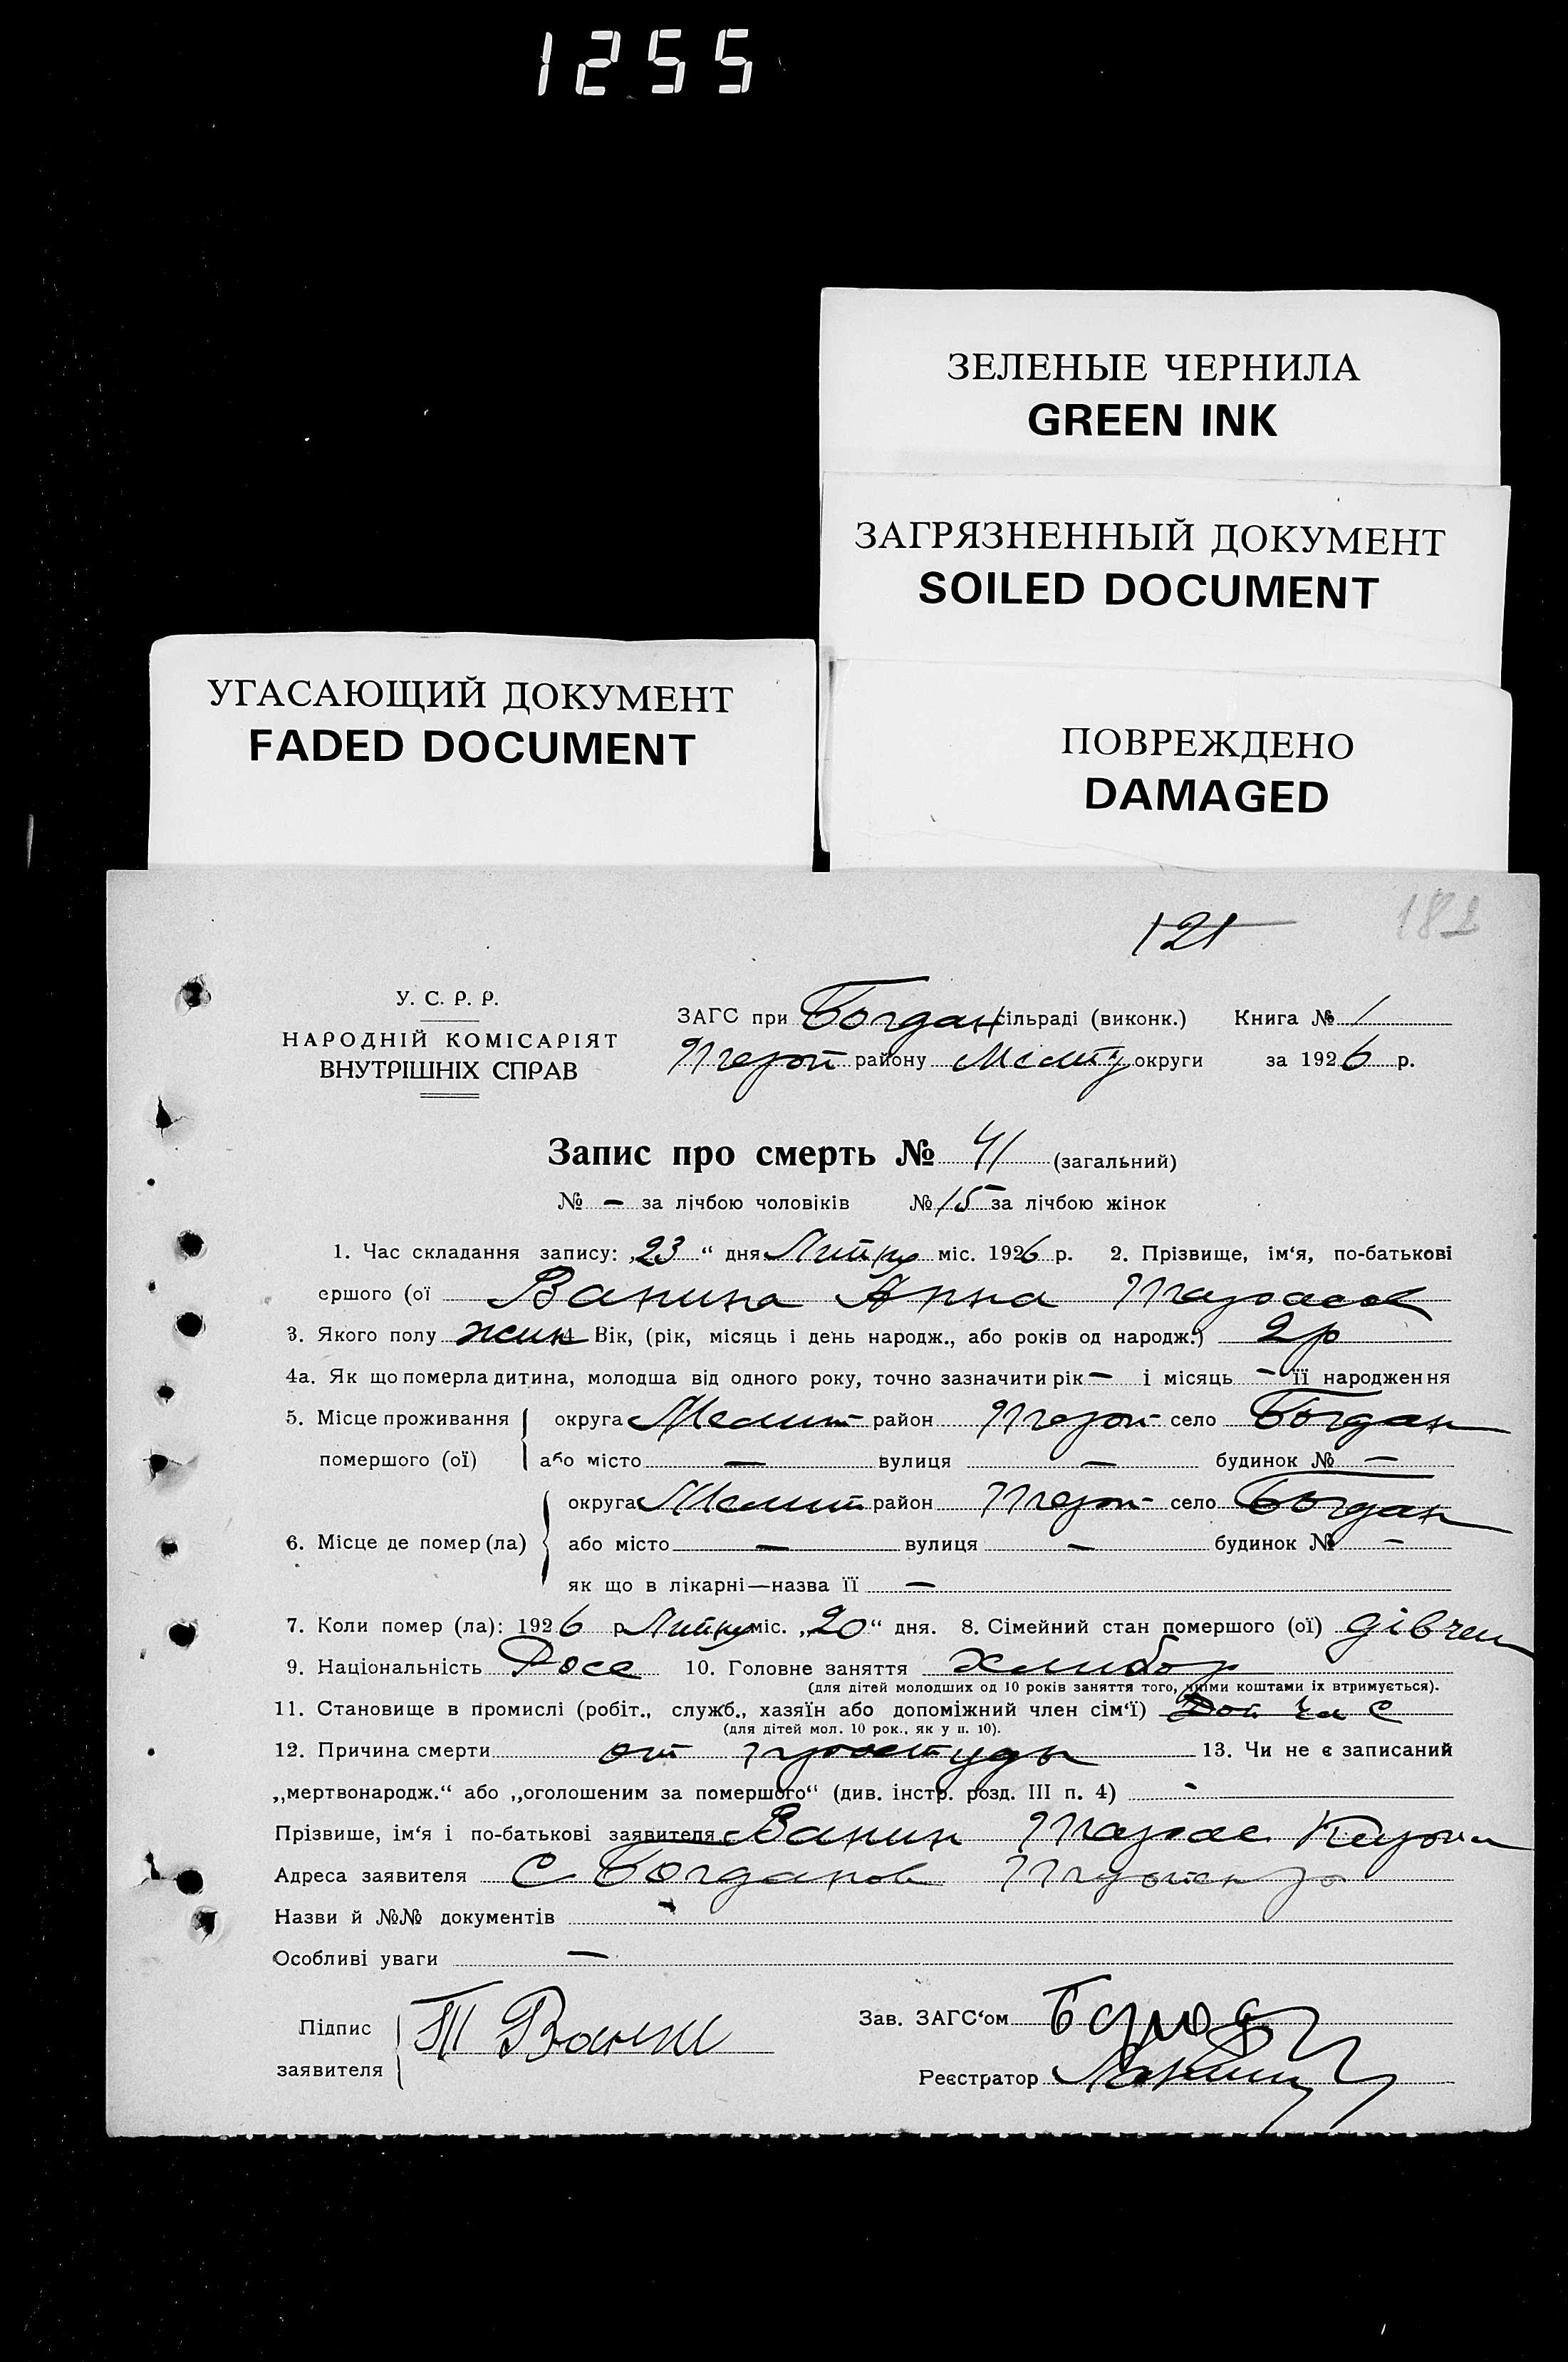 1255
ЗЕЛЕНЫЕ ЧЕРНИЛА
GREEN INK
ЗАГРЯЗНЕННЫЙ ДОКУМЕНТ
SOILED DOCUMENT
УГАСАЮЩИЙ ДОКУМЕНТ
FADED DOCUMENT
ПОВРЕЖДЕНО
DAMAGED
121 182
У. С. Р. Р.
НАРОДНІЙ КОМІСАРІЯТ
ВНУТРІШНІХ СПРАВ
ЗАГС при Богдан сільраді (виконк.) Книга № 1
району округи за 1926 р.
Запис про смерть № 41 (загальний)
№ – за лічбою чоловіків № 15 за лічбою жінок
1. Час складання запису: „23“ дня Липню міс. 1926 р. 2. Прізвище, ім‘я, по-батькові
ершого (ої Ванина Анна Тарасов
3. Якого полу жин 4 Вік, (рік, місяць і день народж., або років од народж.) 2 р
4а. Як що померла дитина, молодша від одного року, точно зазначити рік – і місяць – її народження
5. Місце проживання округа Мелит район село Богдан
помершого (ої) або місто – вулиця – будинок № –
округа Мелит район село Богдан
6. Місце де помер (ла) або місто – вулиця – будинок № –
як що в лікарні—назва її –
7. Коли помер (ла): 1926 р Липню міс. „20“ дня. 8. Сімейний стан помершого (ої) дівчен
9. Національність Росс 10. Головне заняття хлибор
(для дітей молодших од 10 років заняття того, чиїми коштами їх втримується).
11. Становище в промислі (робіт., служб., хазяїн або допоміжний член сім‘ї) Доп чл с
(для дітей мол. 10 рок., як у п. 10).
12. Причина смерти от простуды 13. Чи не є записаний
„мертвонародж.“ або „оголошеним за помершого“ (див. інстр. розд. III п. 4) –
Прізвище, ім‘я і по-батькові заявителя Ванин Тарас
Адреса заявителя С Богданов
Назви й №№ документів –
Особливі уваги –
Підпис Т Ванин
заявителя
Зав. ЗАГС‘ом
Реєстратор